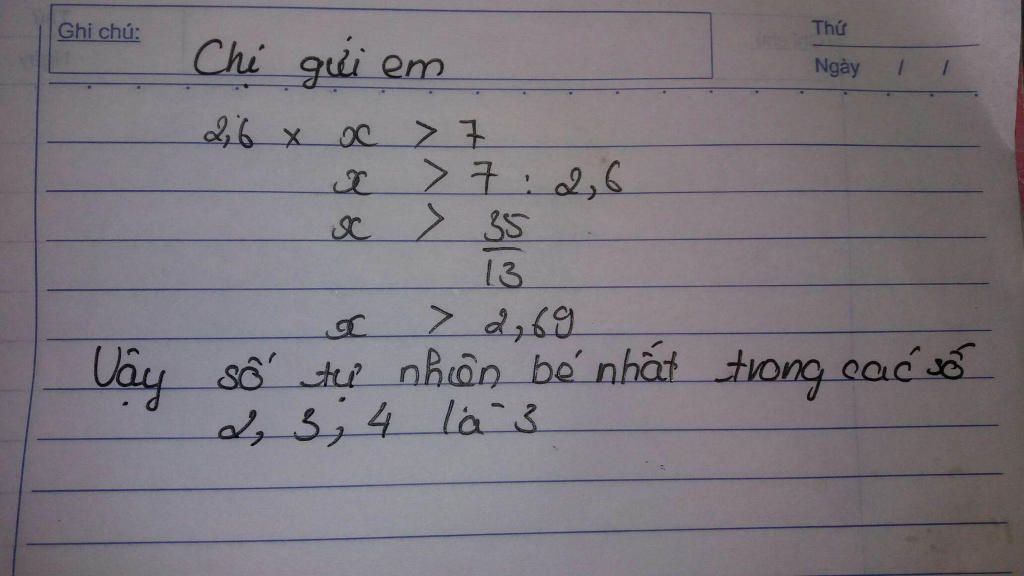 Ghi chú:
Thứ
Ngày / /
Chị gửi em
2,6 x x > 7
x > 7 : 2,6
x > 35/13
x > 2,69
Vậy số tự nhiên bé nhất trong các số
2, 3, 4 là 3